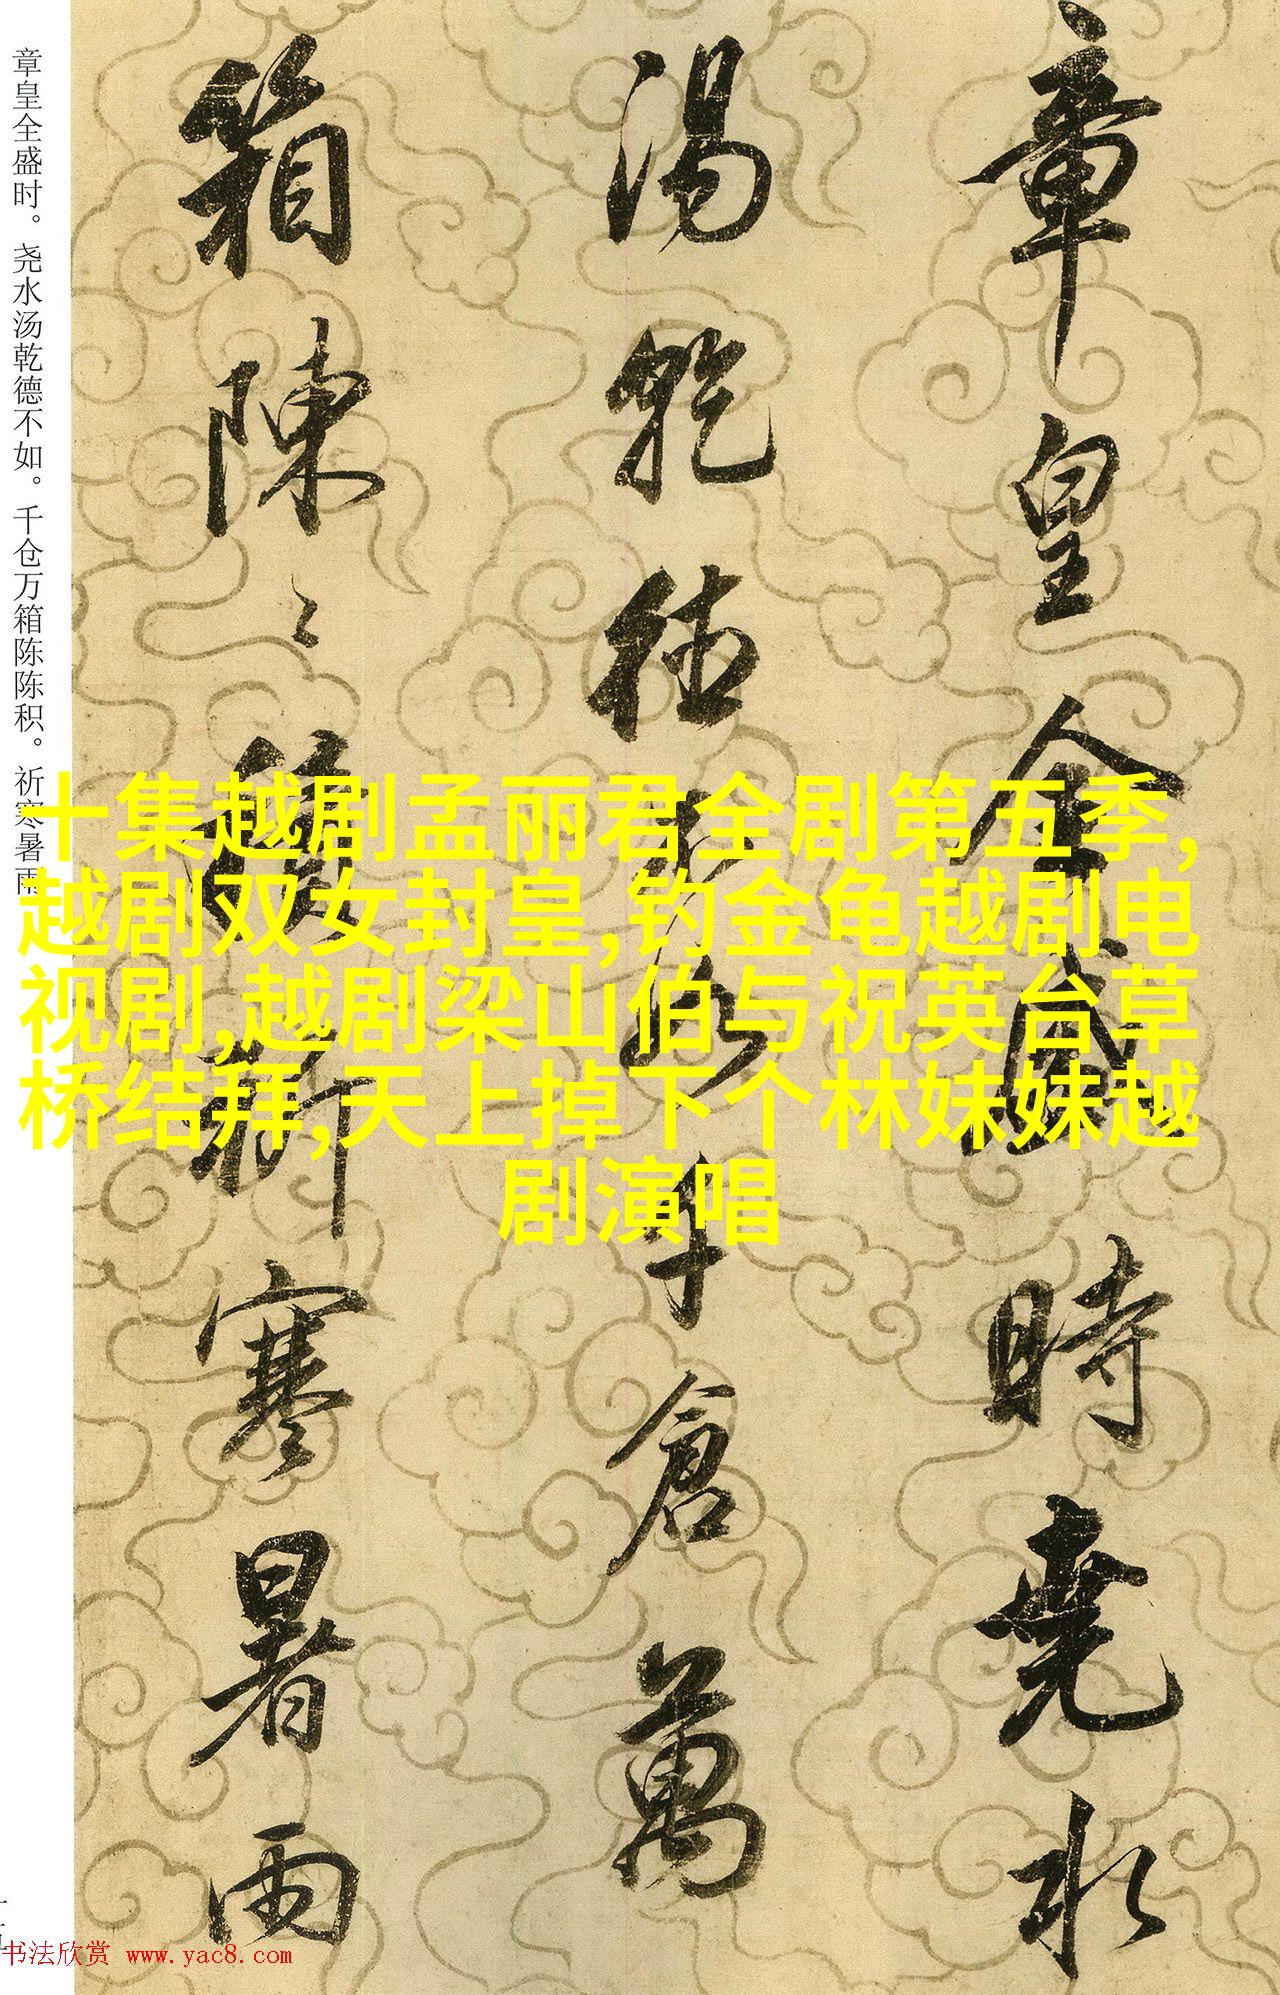 章皇全盛時堯水
湯乾德不如千倉萬
箱陳〻積祈寒暑雨
章皇全盛时。尧水汤乾德不如。千仓万箱陈陈积。祈寒暑雨
十集越剧孟丽君全剧第五季,
越剧双女封皇,钓金龟越剧电
视剧,越剧梁山伯与祝英台草
桥结拜,天上掉下个林妹妹越
剧演唱
书法欣赏 www.yac8.com